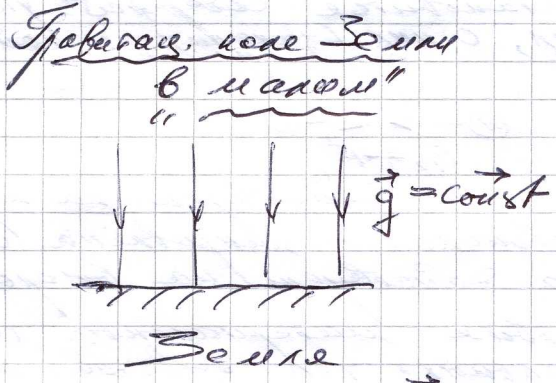 Гравитац. поле Земли
"в малом"
g⃗ = const⃗
Земля